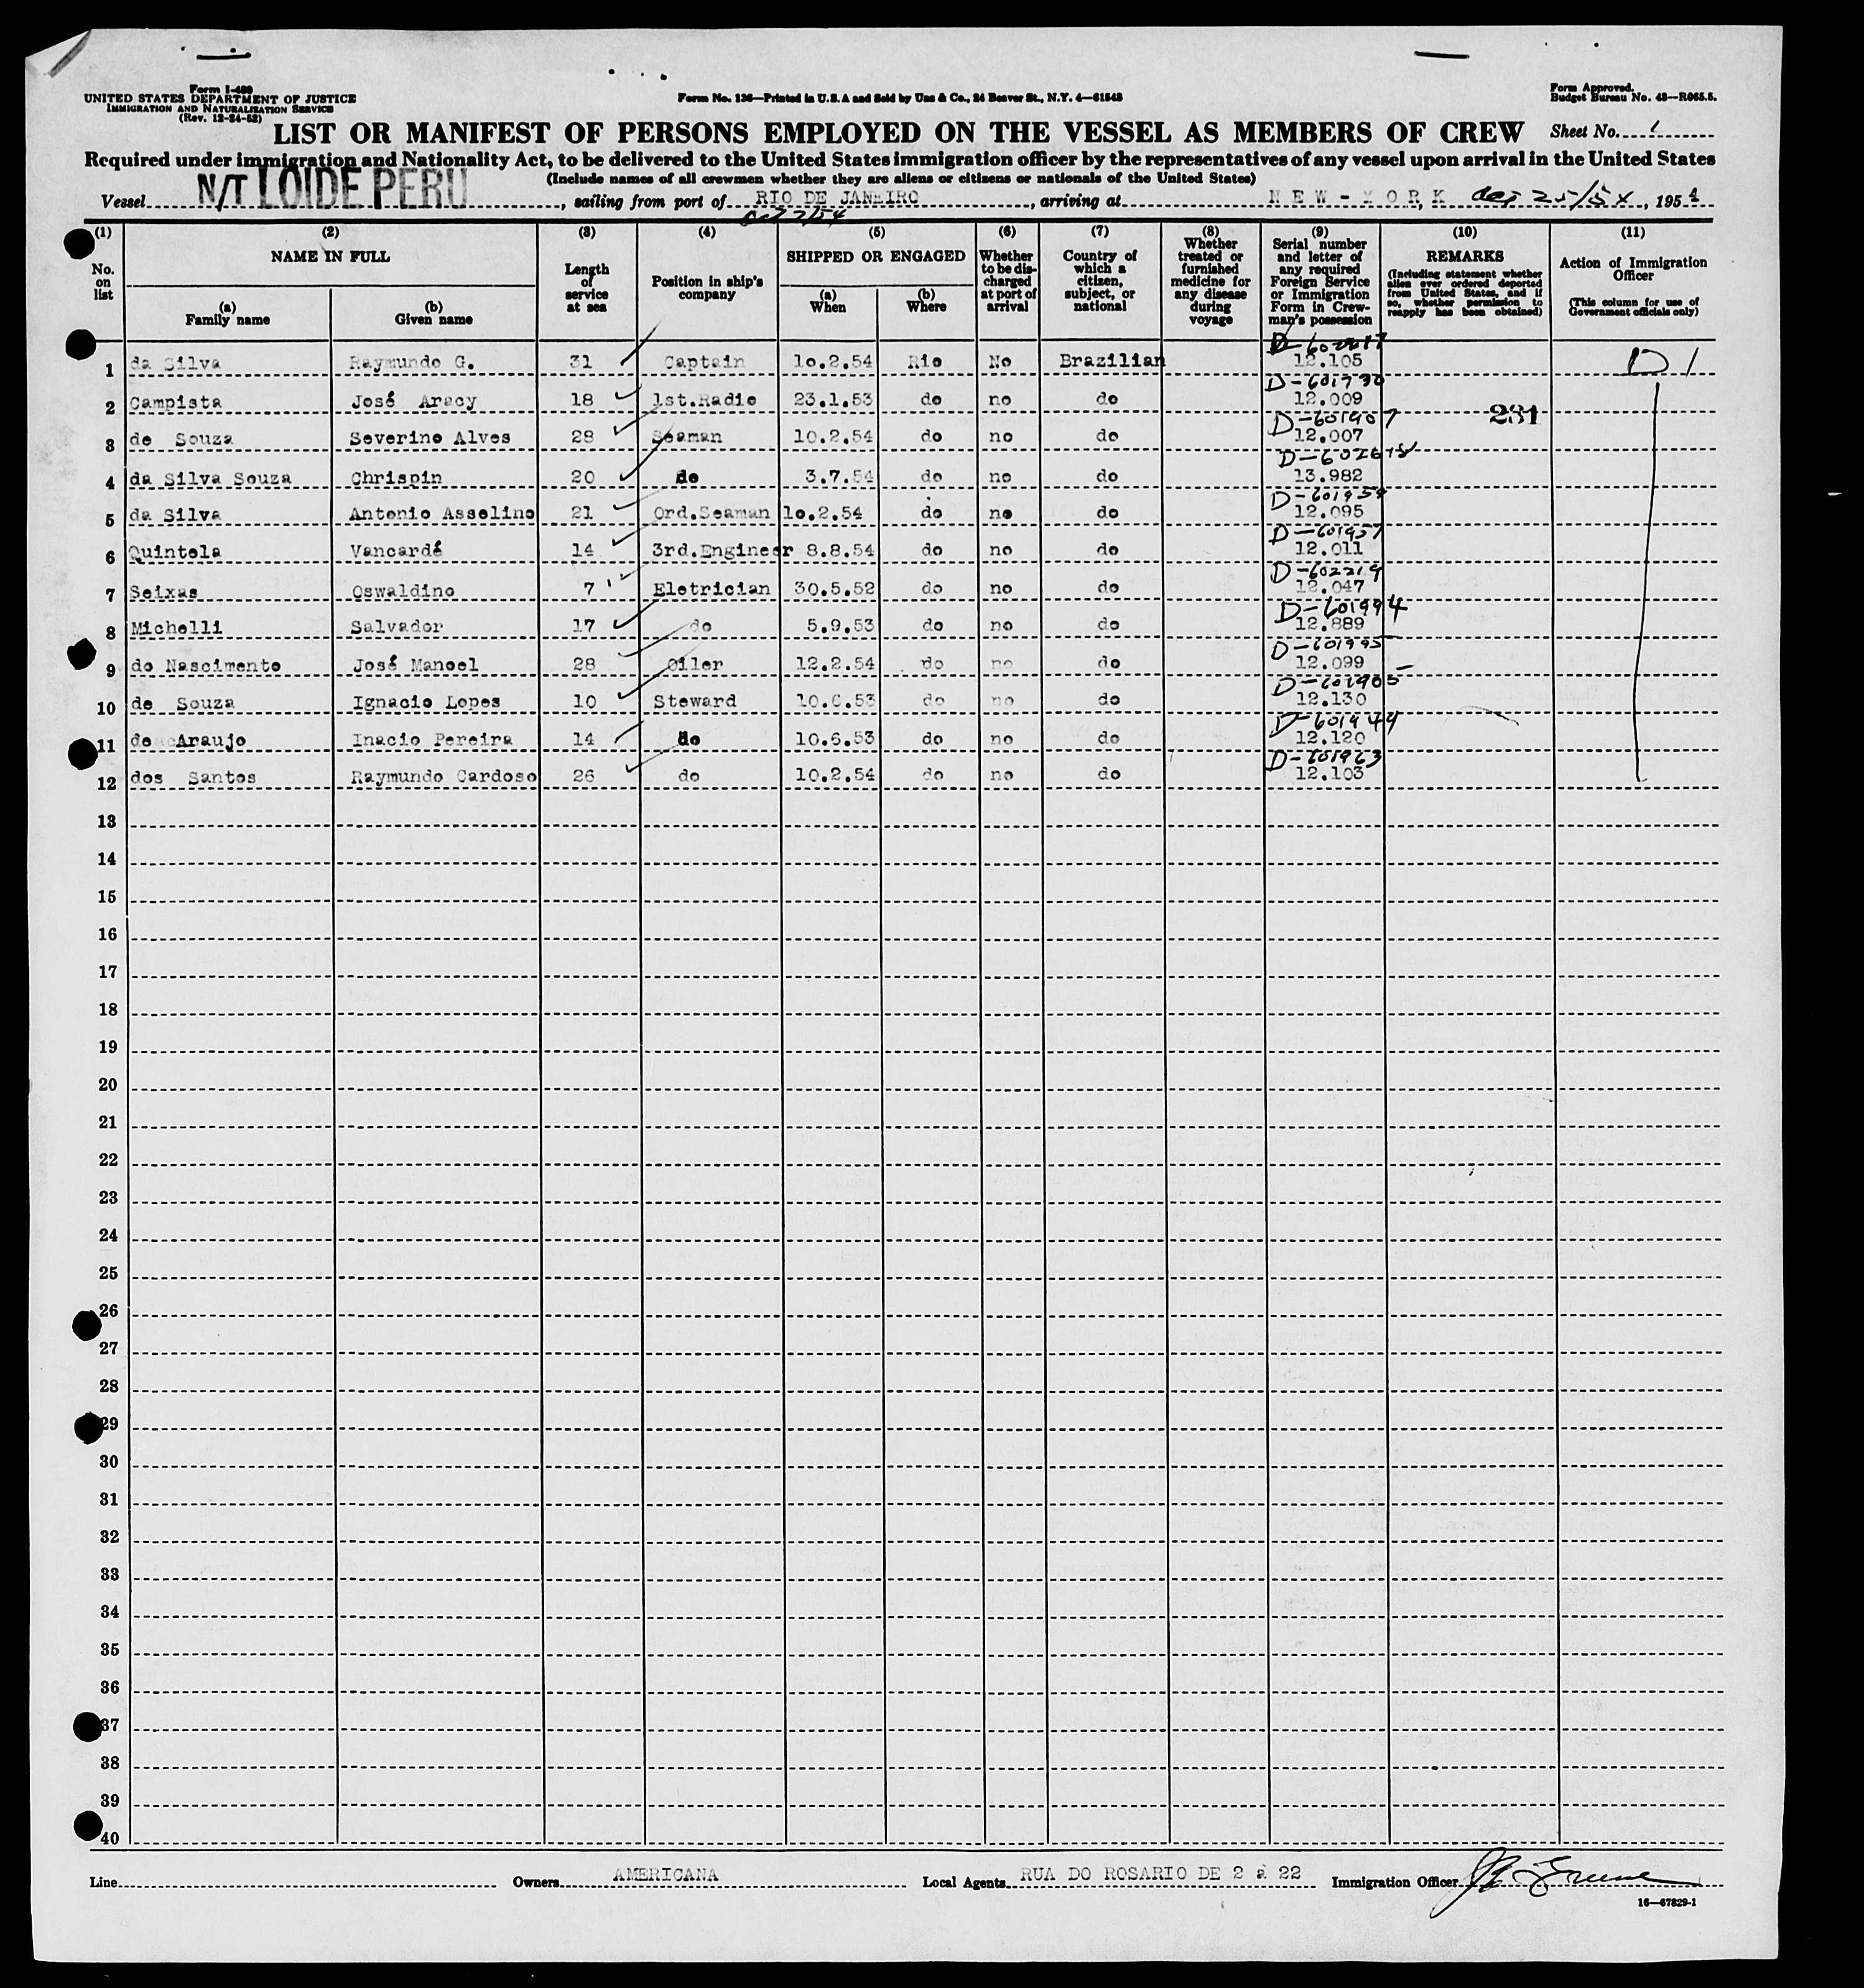 Form I-489
UNITED STATES DEPARTMENT OF JUSTICE
IMMIGRATION AND NATURALIZATION SERVICE
(Rev. 12-24-52)
Form No. 136—Printed in U.S.A and Sold by Unz & Co., 24 Beaver St., N.Y. 4—61543
Form Approved.
Budget Bureau No. 43—R065.5.
LIST OR MANIFEST OF PERSONS EMPLOYED ON THE VESSEL AS MEMBERS OF CREW Sheet No. 1
Required under immigration and Nationality Act, to be delivered to the United States immigration officer by the representatives of any vessel upon arrival in the United States
(Include names of all crewmen whether they are aliens or citizens or nationals of the United States)
Vessel N/T LOIDE PERU, sailing from port of RIO DE JANEIRO, arriving at NEW-YORK, 25/54, 1954
(1) (2) (3) (4) (5) (6) (7) (8) (9) (10) (11)
No. on list
NAME IN FULL
(a) Family name
(b) Given name
Length of service at sea
Position in ship's company
SHIPPED OR ENGAGED
(a) When
(b) Where
Whether to be discharged at port of arrival
Country of which a citizen, subject, or national
Whether treated or furnished medicine for any disease during voyage
Serial number and letter of any required Foreign Service or Immigration Form in Crewman's possession
REMARKS
(Including statement whether alien ever ordered deported from United States, and if so, whether permission to reapply has been obtained)
Action of Immigration Officer
(This column for use of Government officials only)
1 da Silva Raymundo G. 31 Captain 1o.2.54 Rio No Brazilian 12.105 D1
D-601730
2 Campista José Aracy 18 1st.Radio 23.1.53 do no do 12.009
231
D-601907
3 de Souza Severino Alves 28 Seaman 10.2.54 do no do 12.007
4 da Silva Souza Chrispin 20 do 3.7.54 do no do 13.982
D-601959
5 da Silva Antonio Asselino 21 Ord.Seaman 1o.2.54 do no do 12.095
D-601957
6 Quintela Vancardé 14 3rd.Engineer 8.8.54 do no do 12.011
D-602219
7 Seixas Oswaldino 7 Eletrician 30.5.52 do no do 12.047
D-601994
8 Michelli Salvador 17 do 5.9.53 do no do 12.889
D-601995
9 do Nascimento José Manoel 28 Oiler 12.2.54 do no do 12.099
D-601905
10 de Souza Ignacio Lopes 10 Steward 10.6.53 do no do 12.130
D-601944
11 de Araujo Inacio Pereira 14 do 10.6.53 do no do 12.120
D-601963
12 dos Santos Raymundo Cardoso 26 do 10.2.54 do no do 12.103
13
14
15
16
17
18
19
20
21
22
23
24
25
26
27
28
29
30
31
32
33
34
35
36
37
38
39
40
Line Owners AMERICANA Local Agents RUA DO ROSARIO DE 2 à 22 Immigration Officer
16—67829-1